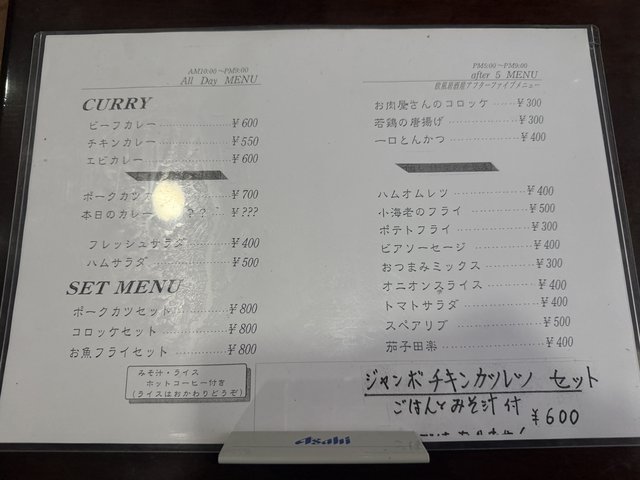 AM10:00～PM9:00
All Day MENU
CURRY
ビーフカレー ¥600
チキンカレー ¥550
エビカレー ¥600
ポークカツ ¥700
本日のカレー ? ? ¥???
フレッシュサラダ ¥400
ハムサラダ ¥500
SET MENU
ポークカツセット ¥800
コロッケセット ¥800
お魚フライセット ¥800
みそ汁・ライス
ホットコーヒー付き
(ライスはおかわりどうぞ)
PM5:00～PM9:00
after 5 MENU
欧風居酒屋アフターファイブメニュー
お肉屋さんのコロッケ ¥300
若鶏の唐揚げ ¥300
一口とんかつ ¥400
ハムオムレツ ¥400
小海老のフライ ¥500
ポテトフライ ¥300
ビアソーセージ ¥400
おつまみミックス ¥300
オニオンスライス ¥400
トマトサラダ ¥400
スペアリブ ¥500
茄子田楽 ¥400
ジャンボチキンカツレツ セット
ごはんとみそ汁付
¥600
Asahi